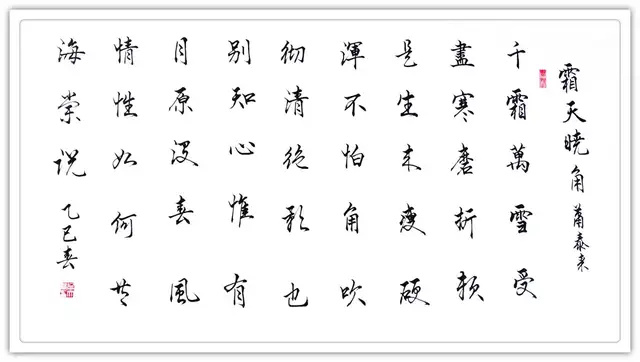 霜天晓角 萧泰来
千霜萬雪受
盡寒磨折赖
是生来瘦硬
渾不怕角吹
彻清绝影也
别知心惟有
月原没春風
情性如何共
海棠说 乙巳春